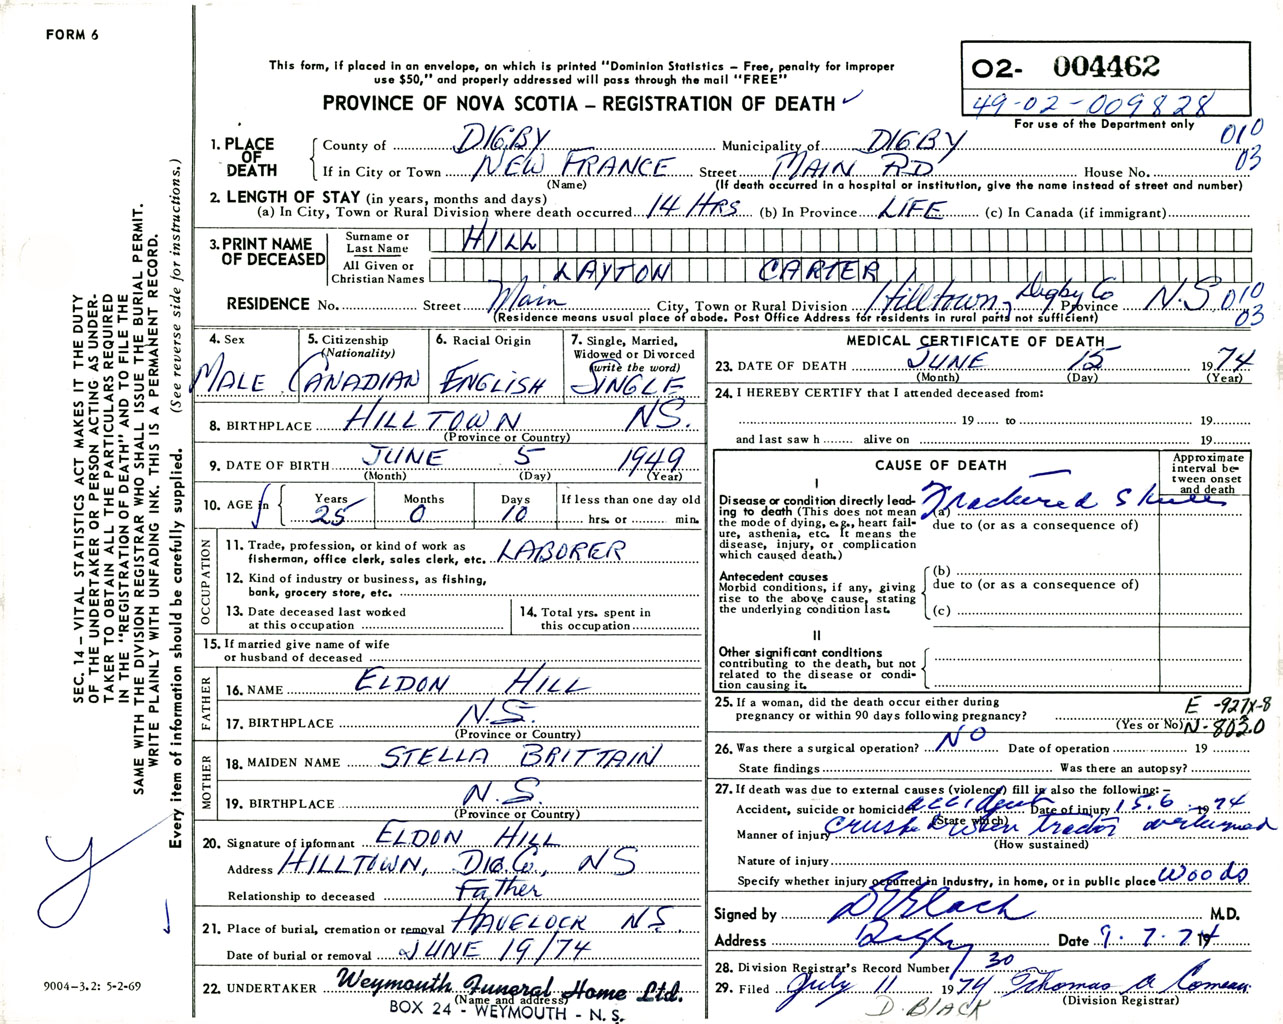 FORM 6
This form, if placed in an envelope, on which is printed "Dominion Statistics – Free, penalty for improper
use $50," and properly addressed will pass through the mail "FREE"
PROVINCE OF NOVA SCOTIA – REGISTRATION OF DEATH ✓
O2- 004462
49-02-009828
For use of the Department only
010
03
1. PLACE OF DEATH
County of DIGBY Municipality of DIGBY
If in City or Town NEW FRANCE Street MAIN RD House No.
(Name) (If death occurred in a hospital or institution, give the name instead of street and number)
2. LENGTH OF STAY (in years, months and days)
(a) In City, Town or Rural Division where death occurred 14 HRS (b) In Province LIFE (c) In Canada (if immigrant)
3. PRINT NAME OF DECEASED
Surname or Last Name HILL
All Given or Christian Names LAYTON CARTER
RESIDENCE No. Street Main City, Town or Rural Division Hilltown, Digby Co Province N.S. 010
(Residence means usual place of abode. Post Office Address for residents in rural parts not sufficient) 03
4. Sex MALE
5. Citizenship (Nationality) CANADIAN
6. Racial Origin ENGLISH
7. Single, Married, Widowed or Divorced (write the word) SINGLE
8. BIRTHPLACE HILLTOWN NS.
(Province or Country)
9. DATE OF BIRTH JUNE 5 1949
(Month) (Day) (Year)
10. AGE in Years 25 Months 0 Days 10 If less than one day old hrs. or min.
OCCUPATION
11. Trade, profession, or kind of work as
fisherman, office clerk, sales clerk, etc. LABORER
12. Kind of industry or business, as fishing,
bank, grocery store, etc.
13. Date deceased last worked
at this occupation
14. Total yrs. spent in
this occupation
15. If married give name of wife
or husband of deceased
FATHER
16. NAME ELDON HILL
17. BIRTHPLACE N.S.
(Province or Country)
MOTHER
18. MAIDEN NAME STELLA BRITTAIN
19. BIRTHPLACE N.S.
(Province or Country)
20. Signature of informant ELDON HILL
Address HILLTOWN, DIG. Co., NS
Relationship to deceased Father
21. Place of burial, cremation or removal HAVELOCK N.S.
Date of burial or removal JUNE 19/74
22. UNDERTAKER Weymouth Funeral Home Ltd.
(Name and address)
BOX 24 - WEYMOUTH - N. S.
MEDICAL CERTIFICATE OF DEATH
23. DATE OF DEATH JUNE 15 1974
(Month) (Day) (Year)
24. I HEREBY CERTIFY that I attended deceased from:
19 to 19
and last saw h alive on 19
CAUSE OF DEATH
Approximate interval between onset and death
I
Disease or condition directly lead-
ing to death (This does not mean
the mode of dying, e.g., heart fail-
ure, asthenia, etc. It means the
disease, injury, or complication
which caused death.)
(a) Fractured Skull
due to (or as a consequence of)
Antecedent causes
Morbid conditions, if any, giving
rise to the above cause, stating
the underlying condition last.
(b)
due to (or as a consequence of)
(c)
II
Other significant conditions
contributing to the death, but not
related to the disease or condi-
tion causing it.
25. If a woman, did the death occur either during
pregnancy or within 90 days following pregnancy?
(Yes or No)
E -927X-8
N-8030
26. Was there a surgical operation? NO Date of operation 19
State findings Was there an autopsy?
27. If death was due to external causes (violence) fill in also the following:–
Accident, suicide or homicide accident Date of injury 15.6 1974
(State which)
Manner of injury crush when tractor overturned
(How sustained)
Nature of injury
Specify whether injury occurred in industry, in home, or in public place Woods
Signed by Black M.D.
Address Digby Date 9.7.74 19
28. Division Registrar's Record Number 30
29. Filed July 11 1974 Thomas A Comeau
(Division Registrar)
D. BLACK
SEC. 14 – VITAL STATISTICS ACT MAKES IT THE DUTY
OF THE UNDERTAKER OR PERSON ACTING AS UNDER-
TAKER TO OBTAIN ALL THE PARTICULARS REQUIRED
IN THE "REGISTRATION OF DEATH" AND TO FILE THE
SAME WITH THE DIVISION REGISTRAR WHO SHALL ISSUE THE BURIAL PERMIT.
WRITE PLAINLY WITH UNFADING INK. THIS IS A PERMANENT RECORD.
Every item of information should be carefully supplied. (See reverse side for instructions.)
9004-3.2: 5-2-69